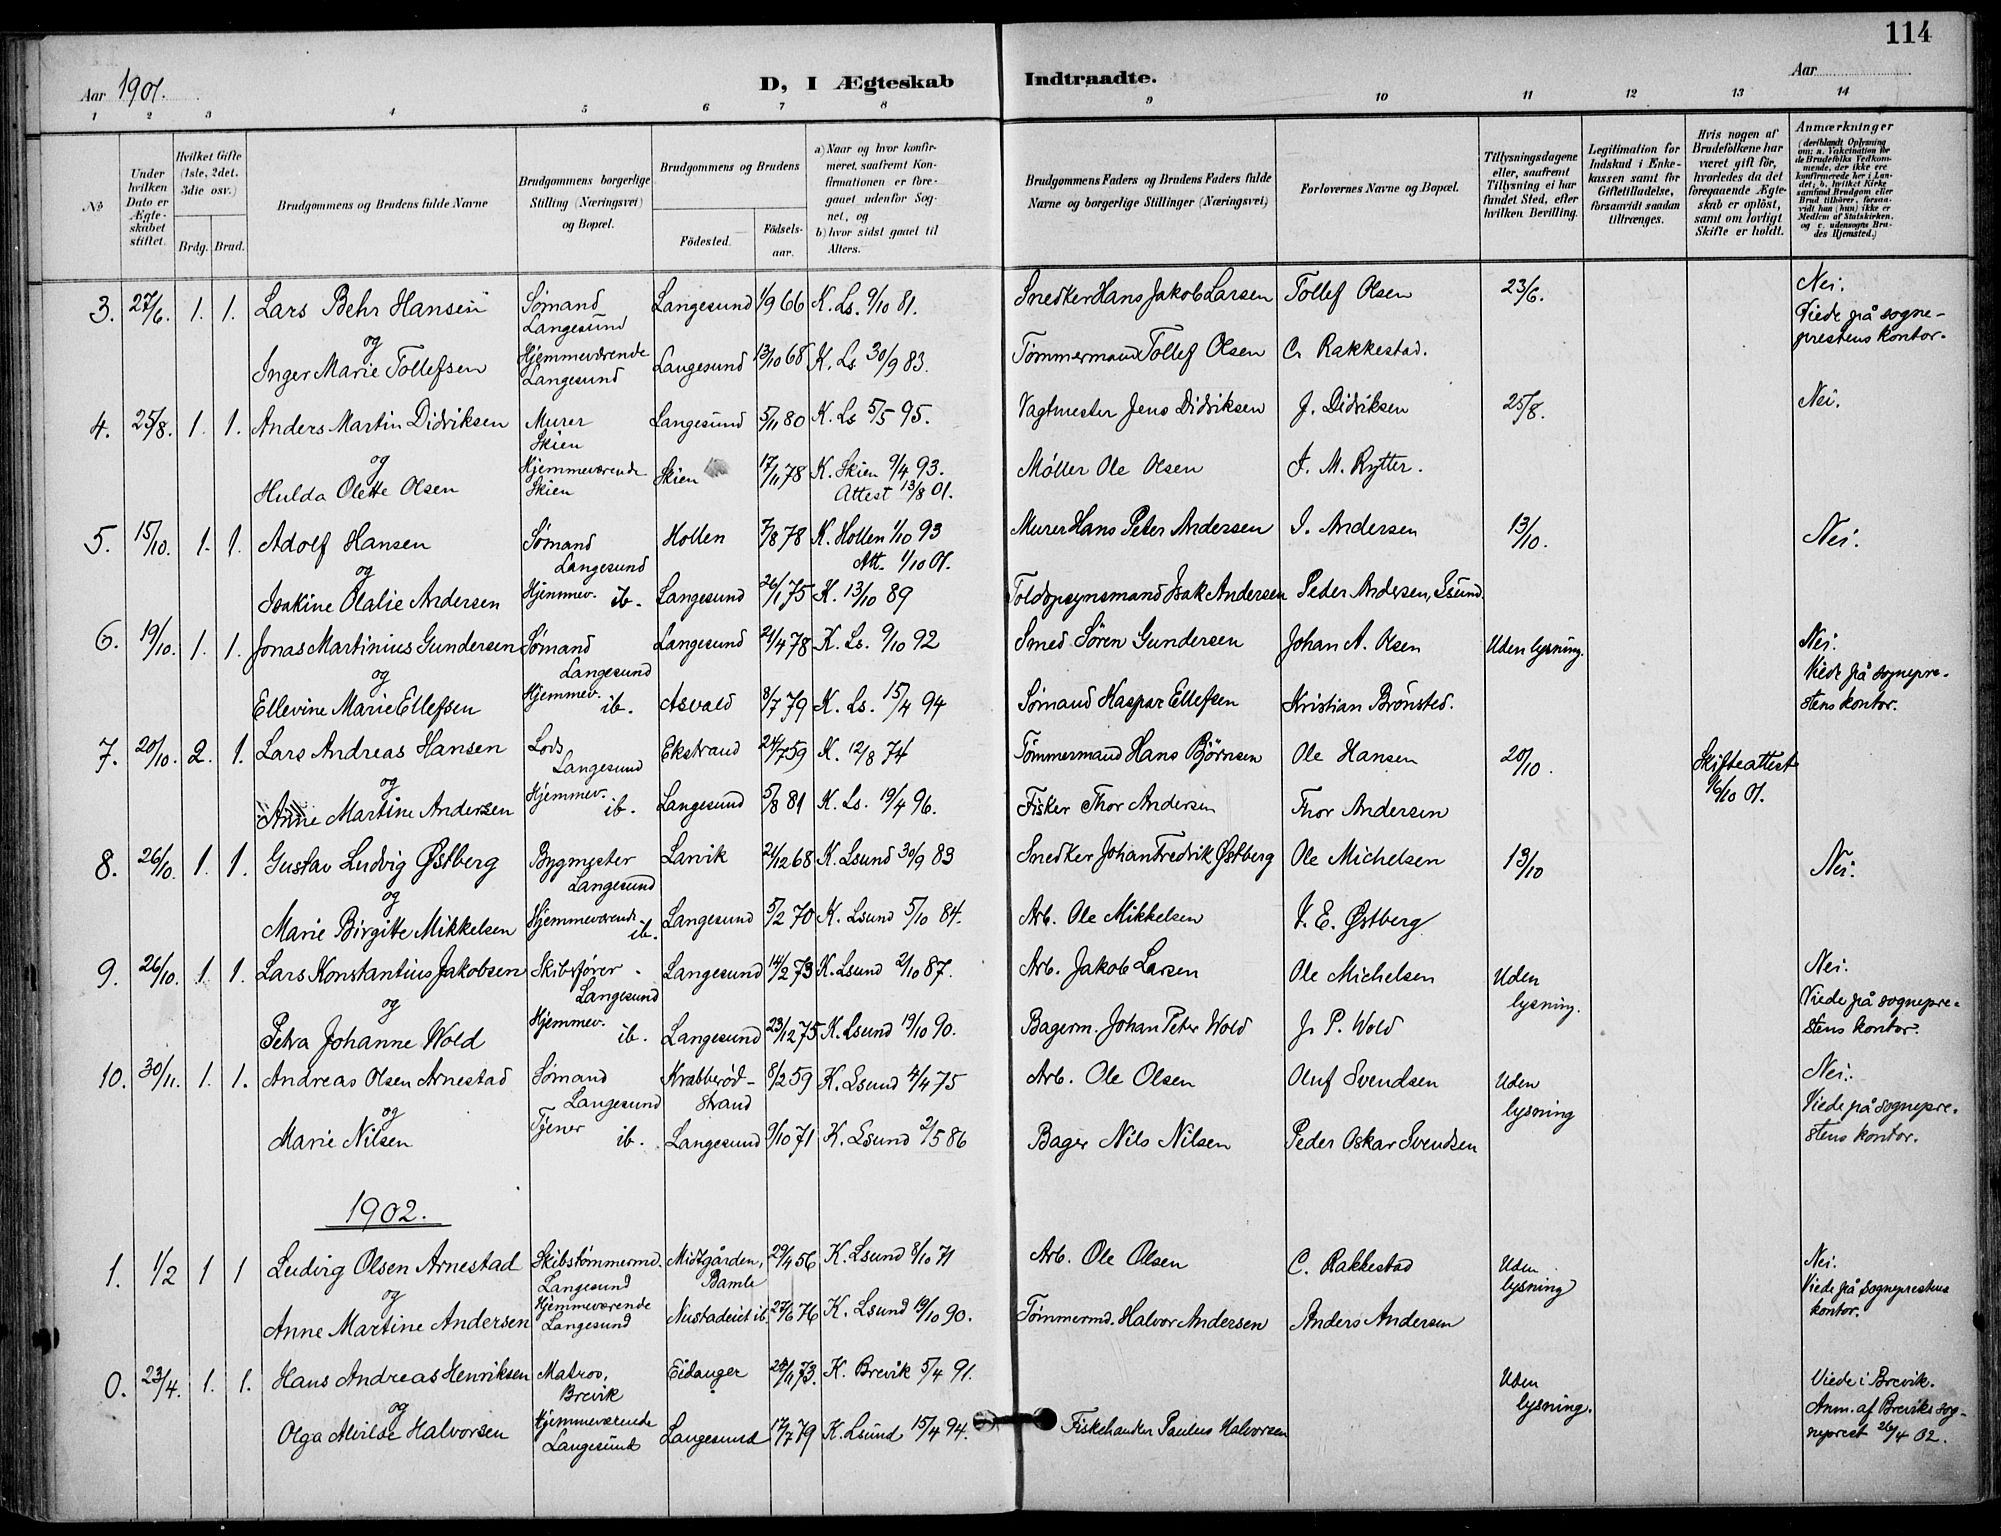 114
Aar 1901.
D, I Ægteskab Indtraadte.
Aar
1 2 3 4 5 6 7 8 9 10 11 12 13 14
№
Under hvilken Dato er Ægteskabet stiftet.
Hvilket Gifte (1ste, 2det, 3die osv.)
Brdg. Brud.
Brudgommens og Brudens fulde Navne
Brudgommens borgerlige Stilling (Næringsvei) og Bopæl.
Brudgommens og Brudens
Fødested. Fødselsaar.
a) Naar og hvor konfirmeret, saafremt Konfirmationen er foregaaet udenfor Sognet, og
b) hvor sidst gaaet til Alters.
Brudgommens Faders og Brudens Faders fulde Navne og borgerlige Stillinger (Næringsvei)
Forlovernes Navne og Bopæl.
Tillysningsdagene eller, saafremt Tillysning ei har fundet Sted, efter hvilken Bevilling.
Legitimation for Indskud i Enkekassen samt for Giftetilladelse, forsaavidt saadan tiltrænges.
Hvis nogen af Brudefolkene har været gift før, hvorledes da det foregaaende Ægteskab er opløst, samt om lovligt Skifte er holdt.
Anmærkninger
(deriblandt Oplysning om: a. Vakcination for de Brudefolks Vedkommende, der ikke ere konfirmerede her i Landet; b. hvilket Kirkesamfund Brudgom eller Brud tilhører, forsaavidt han (hun) ikke er Medlem af Statskirken, og c. udensogns Brudes Hjemsted.)
3. 27/6. 1. 1. Lars Behr Hansen Sømand Langesund Langesund 1/9 66 K. Ls. 9/10 81. Snedker Hans Jakob Larsen Tollef Olsen 23/6. Nei. Viede på sogneprestens kontor.
og
Inger Marie Tollefsen Hjemmeværende Langesund Langesund 13/10 68 K. Ls 30/9 83. Tømmermand Tollef Olsen C. Rakkestad.
4. 25/8. 1. 1. Anders Martin Didriksen Murer Skien Langesund 5/11 80 K. Ls 5/5 95. Vagtmester Jens Didriksen J. Didriksen 25/8. Nei.
og
Hulda Olette Olsen Hjemmeværende Skien Skien 17/11 78 K. Skien 9/4 93. Attest 13/8 01. Møller Ole Olsen J. M. Rytter.
5. 15/10. 1. 1. Adolf Hansen Sømand Langesund Hollen 7/8 78 K. Hollen 1/10 93 Att. 1/10 01. Murer Hans Peter Andersen I. Andersen 13/10. Nei.
og
Isakine Olalie Andersen Hjemmev. ib. Langesund 26/1 75 K. 13/10 89 Toldopsynsmand Isak Andersen Peder Andersen, Lsund.
6. 19/10. 1. 1. Jonas Martinius Gundersen Sømand Langesund Langesund 21/4 78 K. Ls. 9/10 92 Smed Søren Gundersen Johan A. Olsen Uden lysning. Nei. Viede på sogneprestens kontor.
og
Ellevine Marie Ellefsen Hjemmev. ib. Asvald 8/7 79 K. Ls. 15/4 94 Sømand Kaspar Ellefsen Kristian Brønsted.
7. 20/10. 2. 1. Lars Andreas Hansen Lods Langesund Ekstrand 24/7 59 K. 12/8 74 Tømmermand Hans Bjørnsen Ole Hansen 20/10. Skifteattest 16/10 01.
og
Anne Martine Andersen Hjemmev. ib. Langesund 5/8 81 K. Ls. 19/4 96. Fisker Thor Andersen Thor Andersen
8. 26/10. 1. 1. Gustav Ludvig Østberg Bygmester Langesund Larvik 21/12 68 K. Lsund 30/9 83 Snedker Johan Fredrik Østberg Ole Michelsen 13/10 Nei.
og
Marie Birgitte Mikkelsen Hjemmeværende ib. Langesund 5/2 70 K. Lsund 5/10 84. Arb. Ole Mikkelsen E. Østberg
9. 26/10. 1. 1. Lars Konstantius Jakobsen Skibsfører Langesund Langesund 14/2 73 K. Lsund 2/10 87. Arb. Jakob Larsen Ole Michelsen Uden lysning. Nei. Viede på sogneprestens kontor.
og
Petra Johanne Wold Hjemmev. ib. Langesund 23/12 75 K. Lsund 19/10 90. Bagerm. Johan Peter Wold J. P. Wold
10. 30/11. 1. 1. Andreas Olsen Arnestad Sømand Langesund Krabberødstrand 8/2 59 K. Lsund 4/4 75 Arb. Ole Olsen Oluf Svendsen Uden lysning Nei. Viede på sogneprestens kontor.
og
Marie Nilsen Tjener ib. Langesund 9/10 71 K. Lsund 2/5 86 Bager Nils Nilsen Peder Oskar Svendsen
1902.
1. 1/2 1 1 Ludvig Olsen Arnestad Skibstømmermd. Langesund Midtgården, Bamle 29/4 56 K. Lsund 8/10 71 Arb. Ole Olsen C. Rakkestad Uden lysning Nei. Viede på sogneprestens kontor.
og
Anne Martine Andersen Hjemmeværende Langesund Nustadeiet ib. 27/6 76 K. Lsund 19/10 90. Tømmermd. Halvor Andersen Anders Andersen
0. 23/4. 1. 1. Hans Andreas Henriksen Matros, Brevik Eidanger 73. K. Brevik 5/4 91. Uden lysning. Viede i Brevik. Anm. af Breviks sogneprest 26/4 02.
og
Olga Alvilde Halvorsen Hjemmeværende Langesund Langesund 17/7 79 K. Lsund 15/4 94. Fiskehandler Paulus Halvorsen